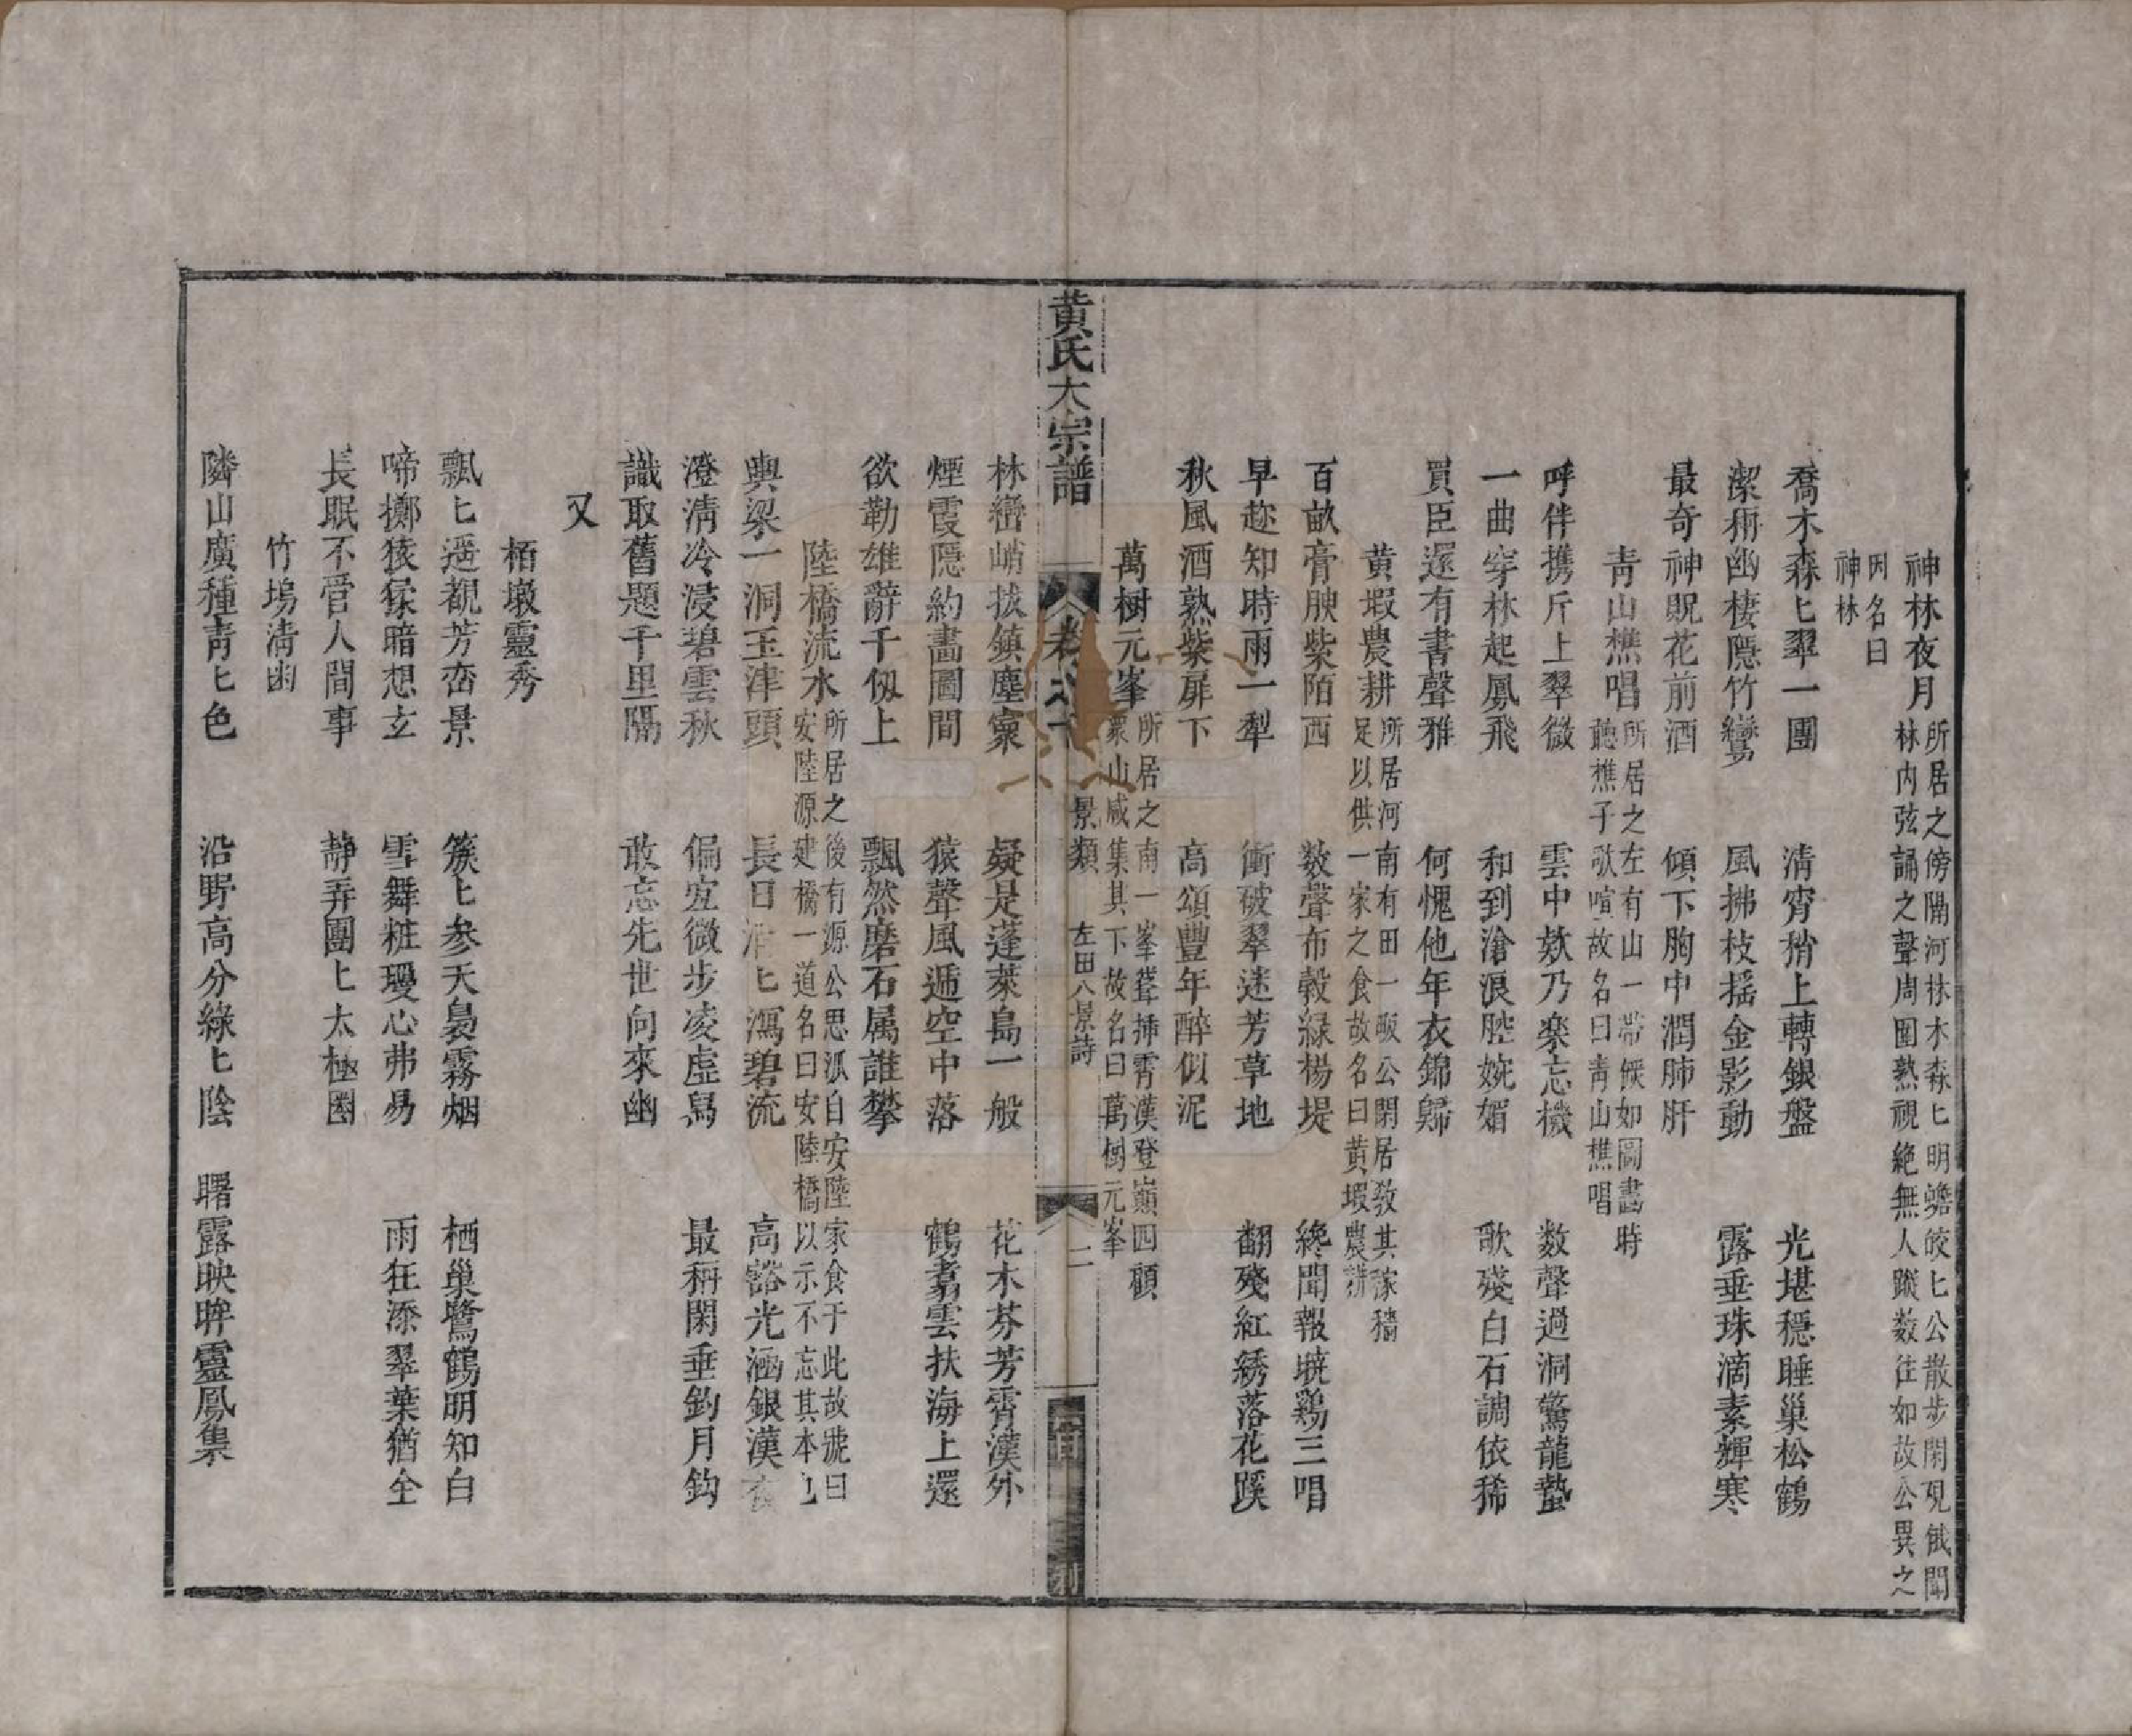 神林夜月 所居之傍隔河林木森匕明蟾皎匕公散步閑覌俄聞
林内弦誦之聲周圍熟視絶無人蹤数往如故公異之
因名曰
神林
喬木森匕翠一團 清宵稍上轉銀盤 光堪穩睡巢松鶴
潔稱幽棲隱竹鸞 風拂枝揺金影動 露垂珠滴素輝寒
最奇神貺花前酒 傾下胸中潤肺肝
靑山樵唱 所居之左有山一帶候如圖畵時
聽樵子歌喧故名曰靑山樵唱
呼伴携斤上翠微 雲中欸乃楽忘機 数聲過洞驚龍蟄
一曲穿林起鳳飛 和到滄浪腔婉媚 歌殘白石調依稀
買臣還有書聲雅 何愧他年衣錦歸
黄蝦農耕 所居河南有田一畈公閑居敎其稼穡
足以供一家之食故名曰黄蝦農耕
百畝膏腴紫陌西 数聲布穀緑楊堤 纔聞報暁鷄三唱
早趂知時雨一犁 衝破翠迷芳草地 翻殘紅綉落花蹊
秋風酒熟柴扉下 高頌豐年醉似泥
萬樹元峯 所居之南一峯聳挿霄漢登巔四顧
衆山咸集其下故名曰萬樹元峯
黄氏大宗譜
景類 左田八景詩 二
林巒峭拔鎮塵寰 疑是蓬萊島一般 花木芬芳霄漢外
煙霞隱約畵圖間 猿聲風遞空中落 鶴翥雲扶海上還
欲勒雄辭千仭上 飄然磨石属誰攀
陸橋流水 所居之後有源公思派自安陸家食于此故號曰
安陸源建橋一道名曰安陸橋以示不忘其本也
輿梁一洞玉津頭 長日涓匕瀉碧流 高豁光涵銀漢
澄淸冷浸碧雲秋 偏宜微步凌虛舄 最稱閑垂釣月鈎
識取舊題千里隔 敢忘先世向來幽
又
栢墩靈秀
飄匕遥覩芳峦景 簇匕参天裊霧烟 栖巢鷺鶴明知白
啼擲猿猱暗想玄 雪舞粧瓊心弗易 雨狂添翠葉猶全
長眠不管人間事 靜弄團匕太極圈
竹塢淸幽
隣山廣種靑匕色 沿野高分綠匕陰 曙露映眸靈鳳集